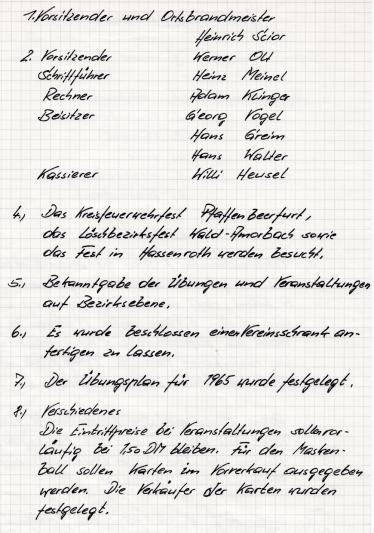 1. Vorsitzender und Ortsbrandmeister
Heinrich Scior
2. Vorsitzender Werner Olt
Schriftführer Heinz Meinel
Rechner Adam Klinger
Beisitzer Georg Vogel
Hans Greim
Hans Walter
Kassierer Willi Heusel
4., Das Kreisfeuerwehrfest Pfaffenbeerfurt,
das Löschbezirksfest Wald-Amorbach sowie
das Fest in Hassenroth werden besucht.
5., Bekanntgabe der Übungen und Veranstaltungen
auf Bezirksebene.
6., Es wurde beschlossen einen Vereinsschrank an-
fertigen zu lassen.
7., Der Übungsplan für 1965 wurde festgelegt.
8., Verschiedenes
Die Eintrittpreise bei Veranstaltungen sollen vor-
läufig bei 1,50 DM bleiben. Für den Masken-
ball sollen Karten im Vorverkauf ausgegeben
werden. Die Verkäufer der Karten wurden
festgelegt.